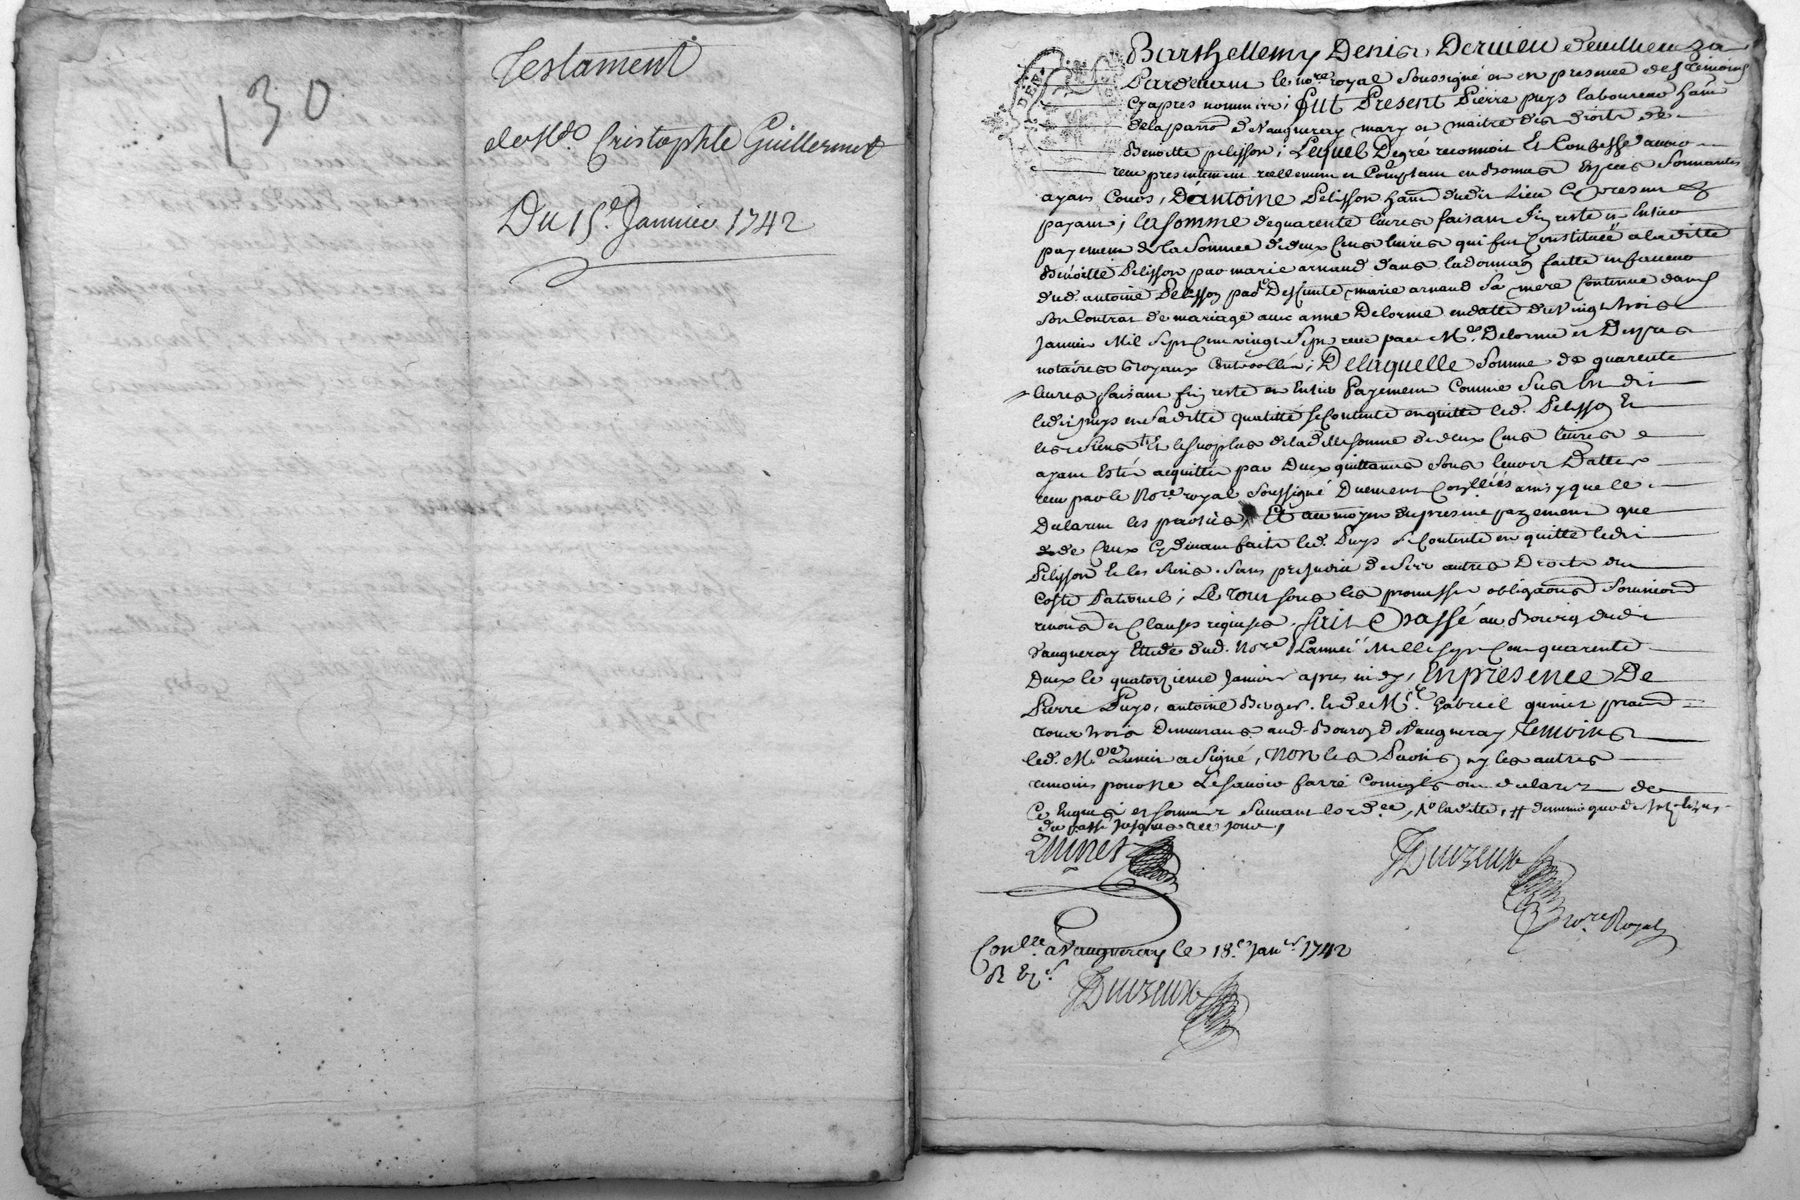 130
Testament
de Me. Cristophle Guillermet
Du 15e. Janvier 1742
Barthellemy Denis Dervieu
Pardevant le nore. royal soussigné et en presence des temoins
cyapres nommés, fut Present Pierre puys laboureur hant
delaparro. de Vaugneray mary et maitre des droits de
Benoitte pelisson; Lequel Degré reconnoit Et Confesse avoir
receu presentement reellement et Comptant en bonnes Especes sonnantes
ayant Cours, D'antoine Pelisson hant dudit Lieu Cy present et
payant; la somme dequarente livres faisant fin reste et Entier
payement de la somme de deux Cens livres qui fut Constituée a laditte
Benoitte Pelisson par marie arnaud dans la donnaon faitte en faveur
dud. antoine Pelisson par Deffunte marie arnaud sa mere Contenue dans
son Contrat de mariage avec anne Delorme en datte du Vingt trois
Janvier Mil Sept Cent vingt Sept receu par Me. Delorme et
notaires royaux Controollé; Delaquelle Somme de quarente
livres faisant fin reste et Entier Payement Comme sus Est dit
ledit puys en saditte qualitté se Contente en quitte led. Pelisson Et
les siens Et le surplus de laditte somme de deux Cens livres
ayant Esté acquitté par Deux quittances sous leurs Dattes
receu par le Nore royal soussigné Duement ainsy que le
Declarent les parties, Et au moyen du present payement que
de Ceux Cy devant faits led. Puys se Contente en quitte ledit
Pelisson Et les siens. sans prejudice de ses autres Droits du
Costé Paternel; Le tout sous les promesses obligaons soumissions
renons et Clauses requises. fait et Passé au Bourg dudit
Vaugneray Etude dud. Nore L'année Mille sept Cent quarente
Deux le quatorzieme Janvier apres midy, En presence De
Pierre Puys, antoine Berger. Et de Me. Gabriel quinet
tous trois Demeurans aud. Bourg de Vaugneray Temoins
led. Me quinet a signé, non les Parties ny les autres
temoins pour ne Le scavoir faire Comme ils ont declarez de
Ce Enquis et sommés suivant lordce,
du passé jusques a ce jour,
Quinet
Conllé. a Vaugneray le 18e. Janer. 1742
nore Royal